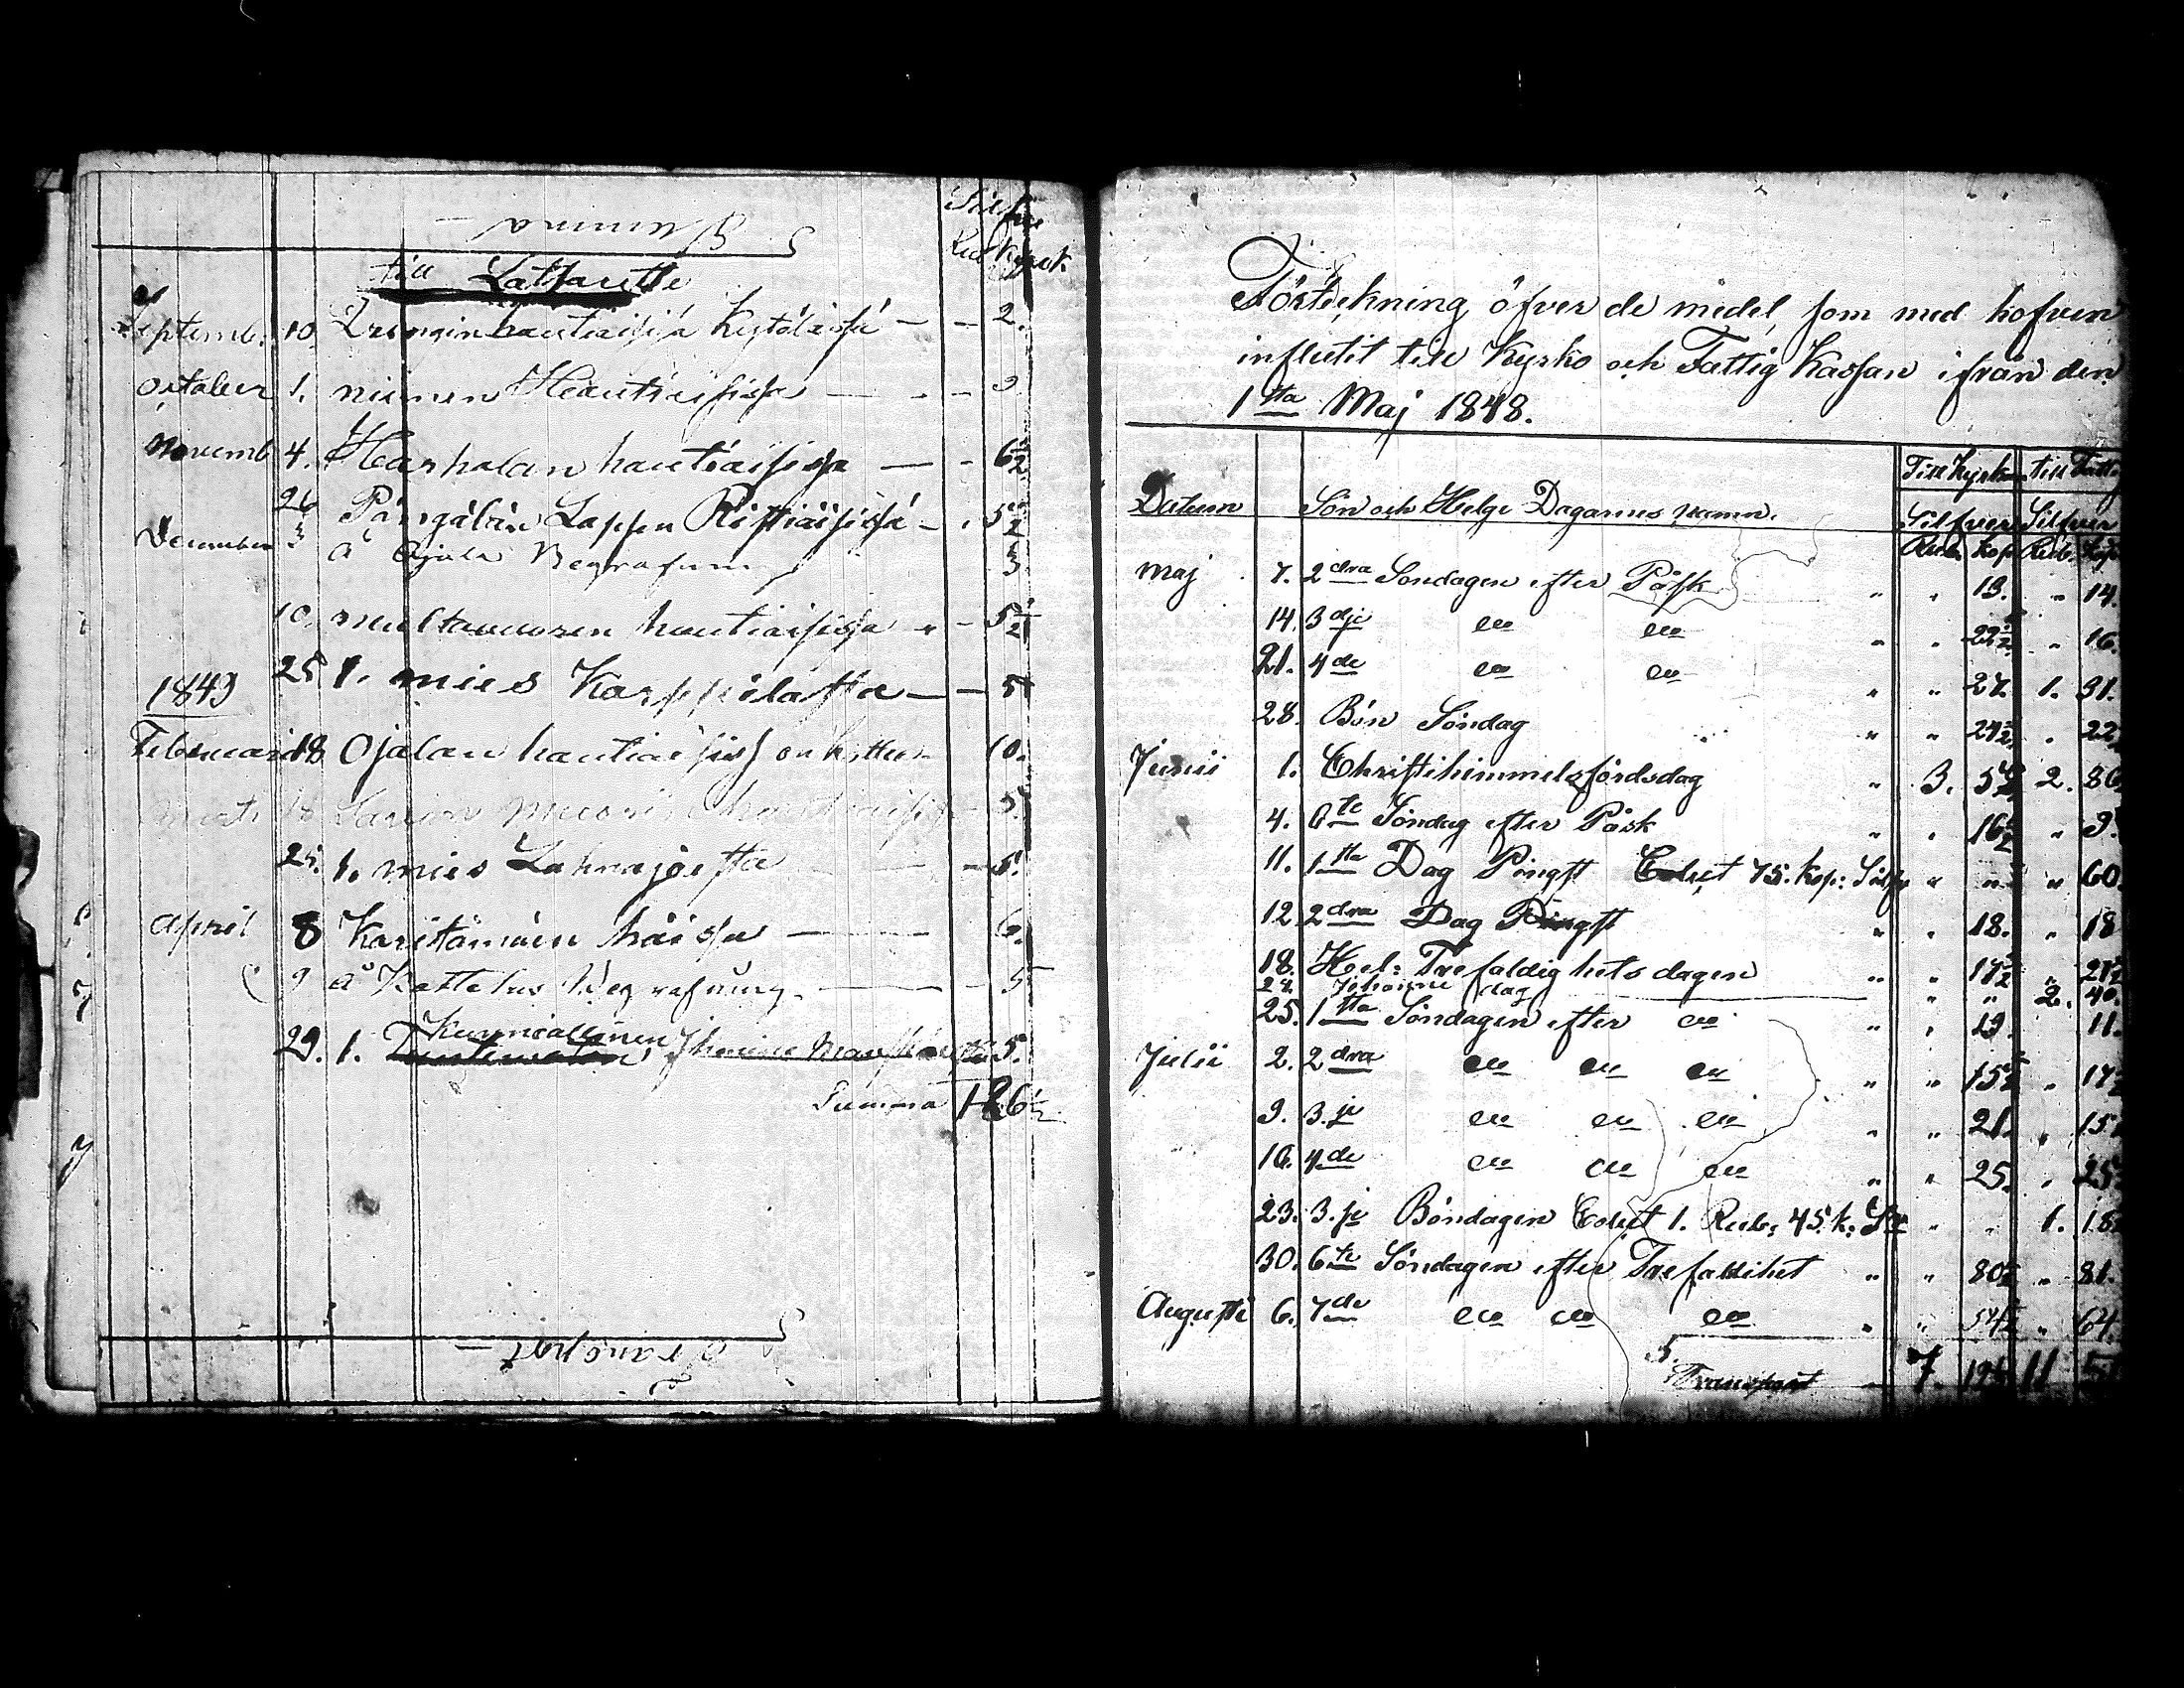 Summa
Silfver
Rub Kopek
till Lattsarette
Septemb. 10. Drengin hautiaisisä Kytölässä — - 2.
October 1. niemen Hautiaisissa — - - 3
Novemb 4. Harhalan hautiaisissa — - 6 1/2
26 Pångälän Lassen Ristiäisissä - . 5 1/2
December 3 Å Ojala Begrafning 3
10. multavuoren hautiaisissa " - 5 1/2
1849 25 1. mies Karppilassa — - 5
Februari 18 Ojalan hautiaisiss 10.
Marti 5.
25. 1. mies Lahnajoesta - 5.
April 8 Karitämäen häissa — 6.
9 å Kattelus Begrafning. — - 5
29. 1. Kurniallinen 5.
Summa 1 86 1/2
Transport
Förteckning öfver de medel, som med hofven
influtit till Kyrko och Fattig Kassan ifrån den
1sta Maj 1848.
Till Kyrkan till Fatti
Datum Sön och Helge Dagarnes namn. Silfver Silfver
Rub. Kop. Rub. Kop
Maj 7. 2dra Söndagen efter Påsk " " 13. " 14.
14. 3dje do do " " 22 1/2 " 16.
21. 4de do do " " 27. 1. 31.
28. Bön Söndag " " 24 1/2 . 22.
Junii 1. Christihimmelsfärdsdag " 3. 5 1/2 2. 86
4. 6te Söndag efter Påsk " " 16 1/2 " 9.
11. 1sta Dag Pingst Colect 75. Kop: Silfv " " " 60.
12. 2dra Dag Pingst " " 18. " 18
18. Hel: Trefaldighets dagen " " 17 1/2 " 21 1/2
24. Johanne dag " " 2. 40.
25. 1sta Söndagen efter do " " 19. 11.
Julii 2. 2dra do do do " " 15 1/2 " 17 1/2
9. 3.je do do do " " 21. " 15
16. 4de do do do " " 25. " 25
23. 3.je Böndagen Colect 1. Rub: 45. k: Sr " " 1. 18
30. 6te Söndagen efter Trefaldihet " " 80 1/2 " 81.
Augusti 6. 7de do do do " " 54 1/2 " 64.
Transport 7. 11